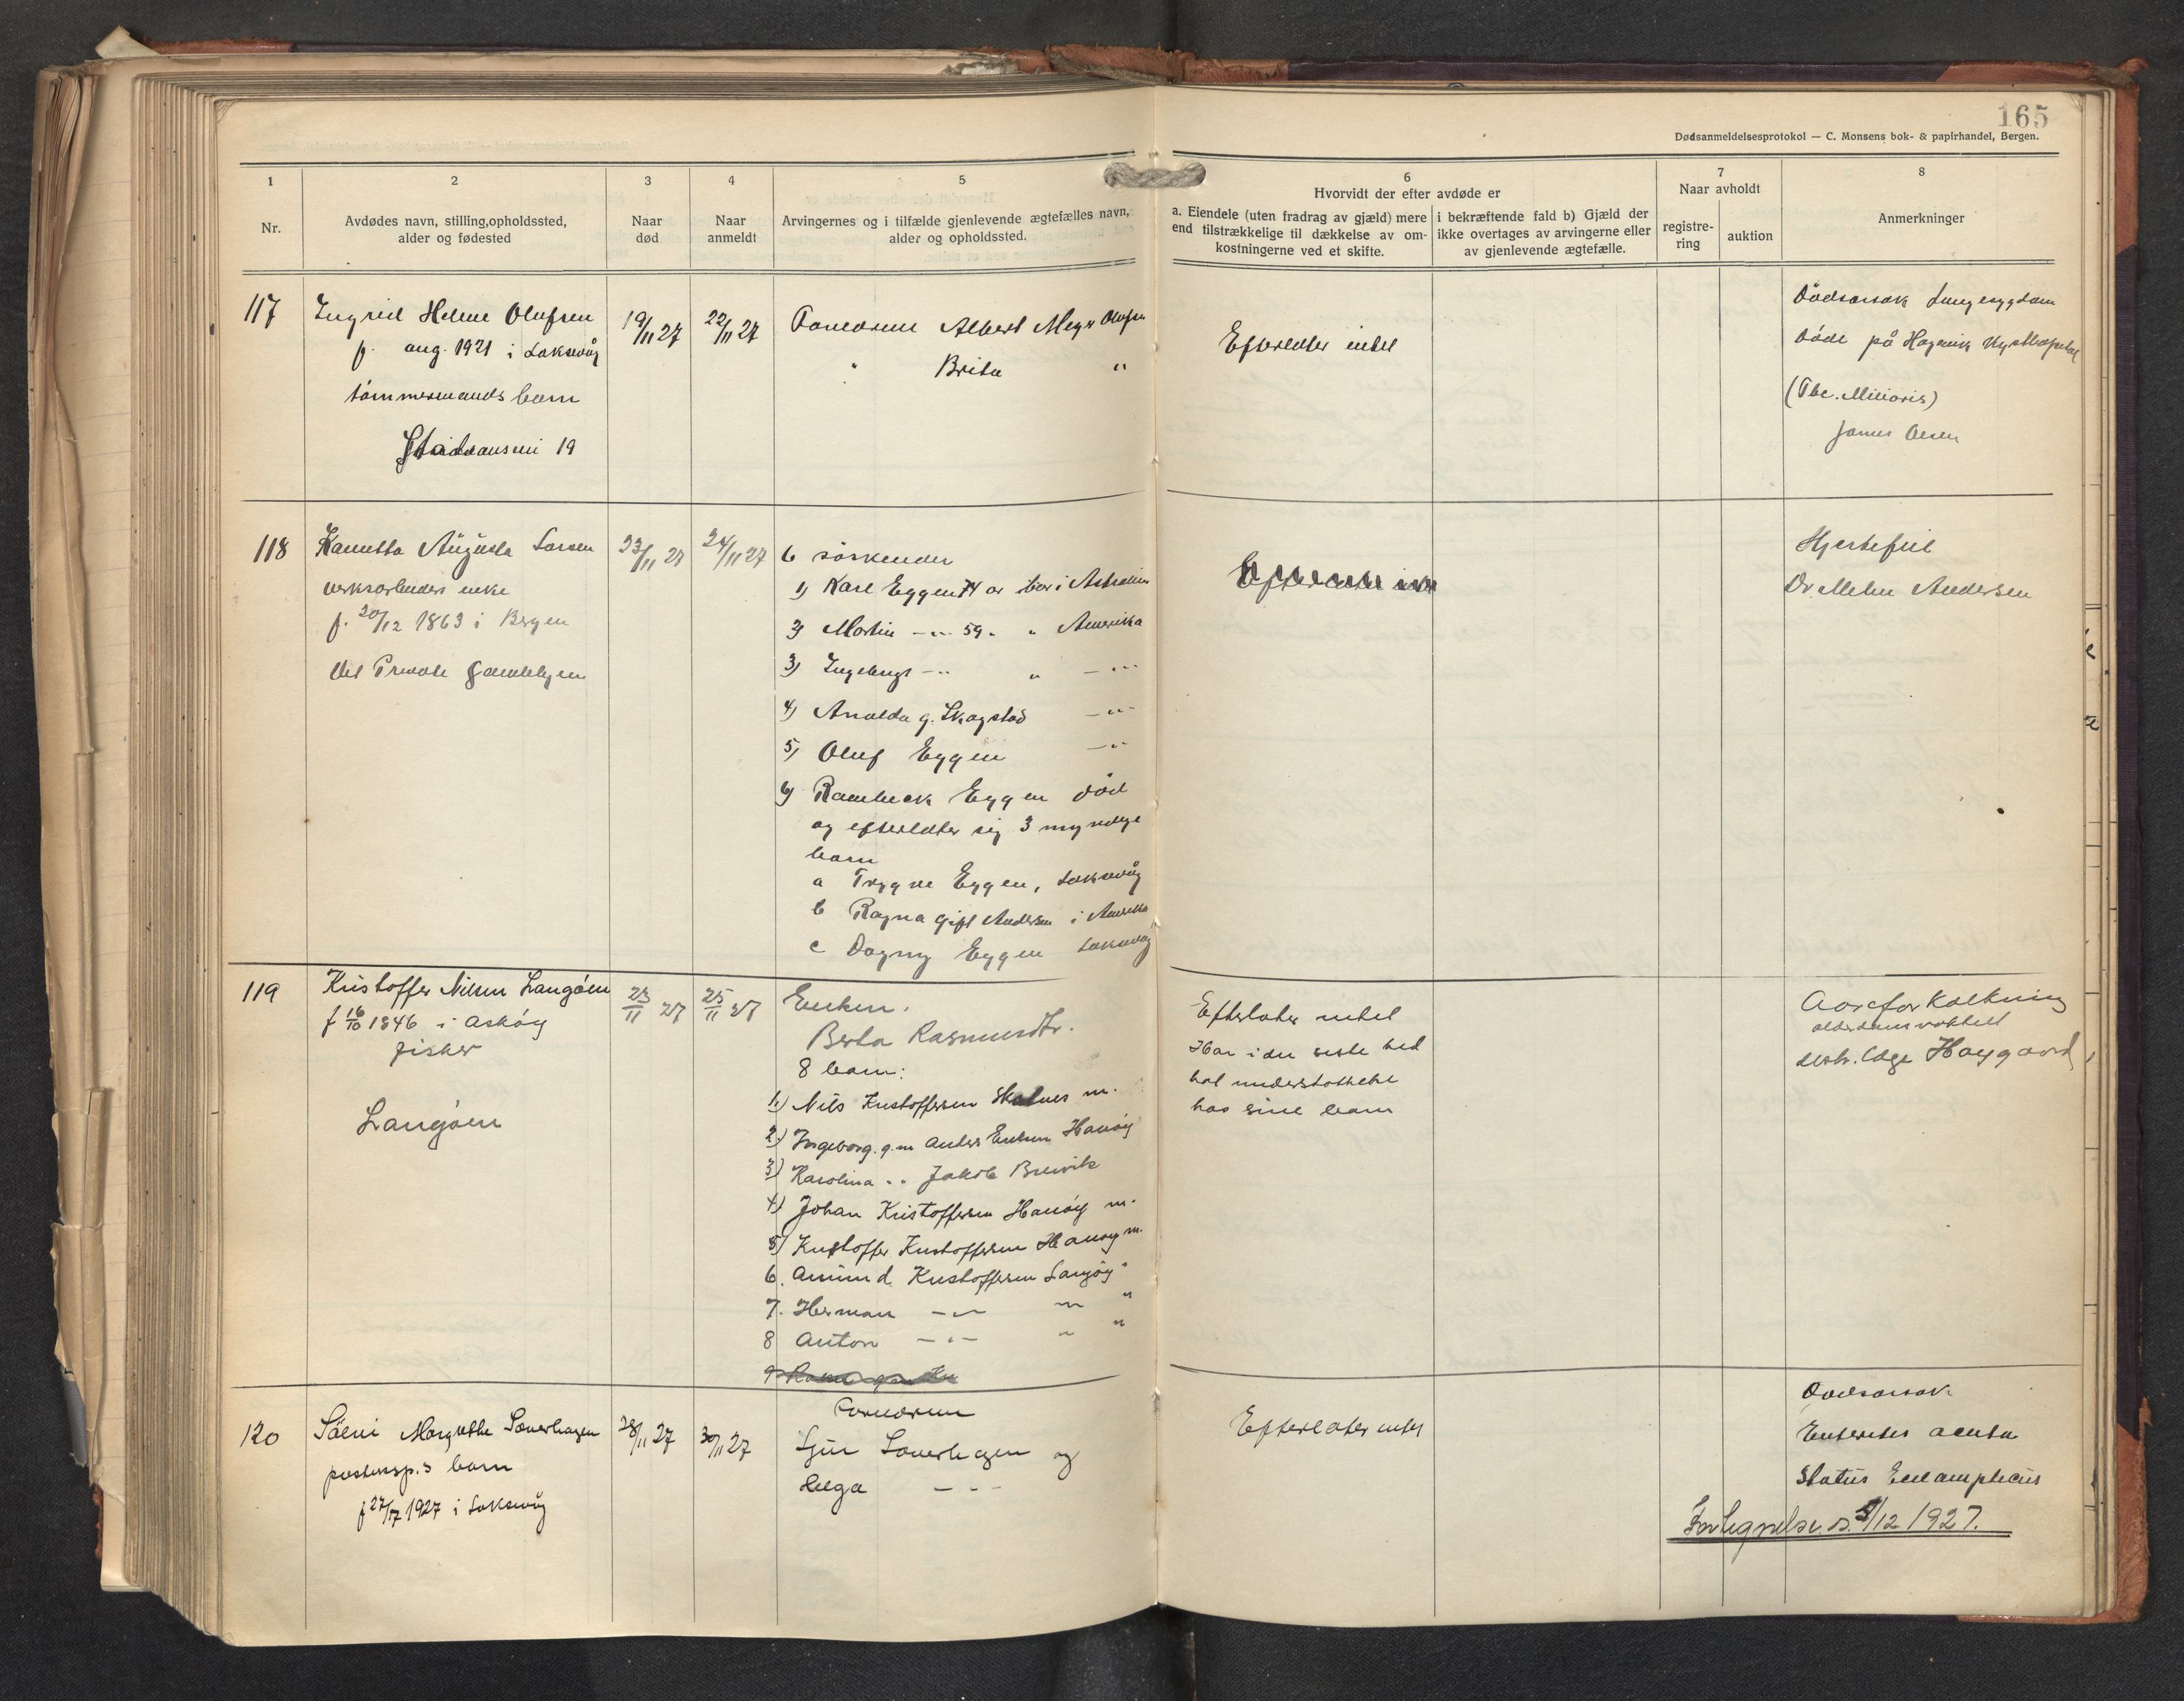 165
Dødsanmeldelsesprotokol — C. Monsens bok- & papirhandel, Bergen.
1
Nr.
2
Avdødes navn, stilling, opholdssted,
alder og fødested
3
Naar
død
4
Naar
anmeldt
5
Arvingernes og i tilfælde gjenlevende ægtefælles navn,
alder og opholdssted.
6
Hvorvidt der efter avdøde er
a. Eiendele (uten fradrag av gjæld) mere
end tilstrækkelige til dækkelse av om-
kostningerne ved et skifte.
i bekræftende fald b) Gjæld der
ikke overtages av arvingerne eller
av gjenlevende ægtefælle.
7
Naar avholdt
registre-
ring
auktion
8
Anmerkninger
117
Ingrid Helene Olufsen
f. aug. 1921 i Laksevåg
tömmermands barn
19
19/11 27
22/11 27
Forældrene Albert Meyer Olufsen
" Brita "
Efterlater intet
Dödsarsak Lungesygdom
Döde på Hagevik Kysthospital
(Tbc. Miliaris)
118
Augusta Larsen
verksarbeiders enke
f. 20/12 1863 i Bergen
Det Private Gamlehjem
23/11 27
24/11 27
6 söskender
1) Karl Eggen 74 år bor i Australien
2) Martin -"- 59 " " Amerika
3) Ingeborg -"- " -"-
4) g. Skogstad -"-
5) Oluf Eggen -"-
6) Eggen död
og efterlater sig 3 myndige
barn
a Trygve Eggen, Laksevåg
b Ragna gift Andersen i Amerika
c Dagny Eggen Laksevåg
Efterlater
Hjertefeil
Dr. Andersen
119
Kristoffer Nilsen Langöen
f 16/10 1846 i Asköy
fisker
Langöen
23/11 27
25/11 27
Enken.
Berta Rasmusdtr.
8 barn:
1.) Nils Kristoffersen Skalnes m.
2.) Ingeborg. g.m Anders Hanöy
3) Karolina " " Jakob Breivik
4) Johan Kristoffersen Hanöy m.
5) Kristoffer Kristoffersen Hanöy m.
6. Amund Kristoffersen Langöy "
7. Herman -"- " "
8 Anton -"- " "
9
Efterlater intet
Har i den siste tid
hat understöttelse
hos sine barn
Aareforkalkning
distr. læge Haugaard
120
Margrethe
barn
f 27/7 1927 i Laksevåg
28/11 27
30/11 27
Forældrene
og
Helga -"-
Efterlater intet
Dödsarsak
Enteritis acuta
Status Eclampticus
5/12 1927.